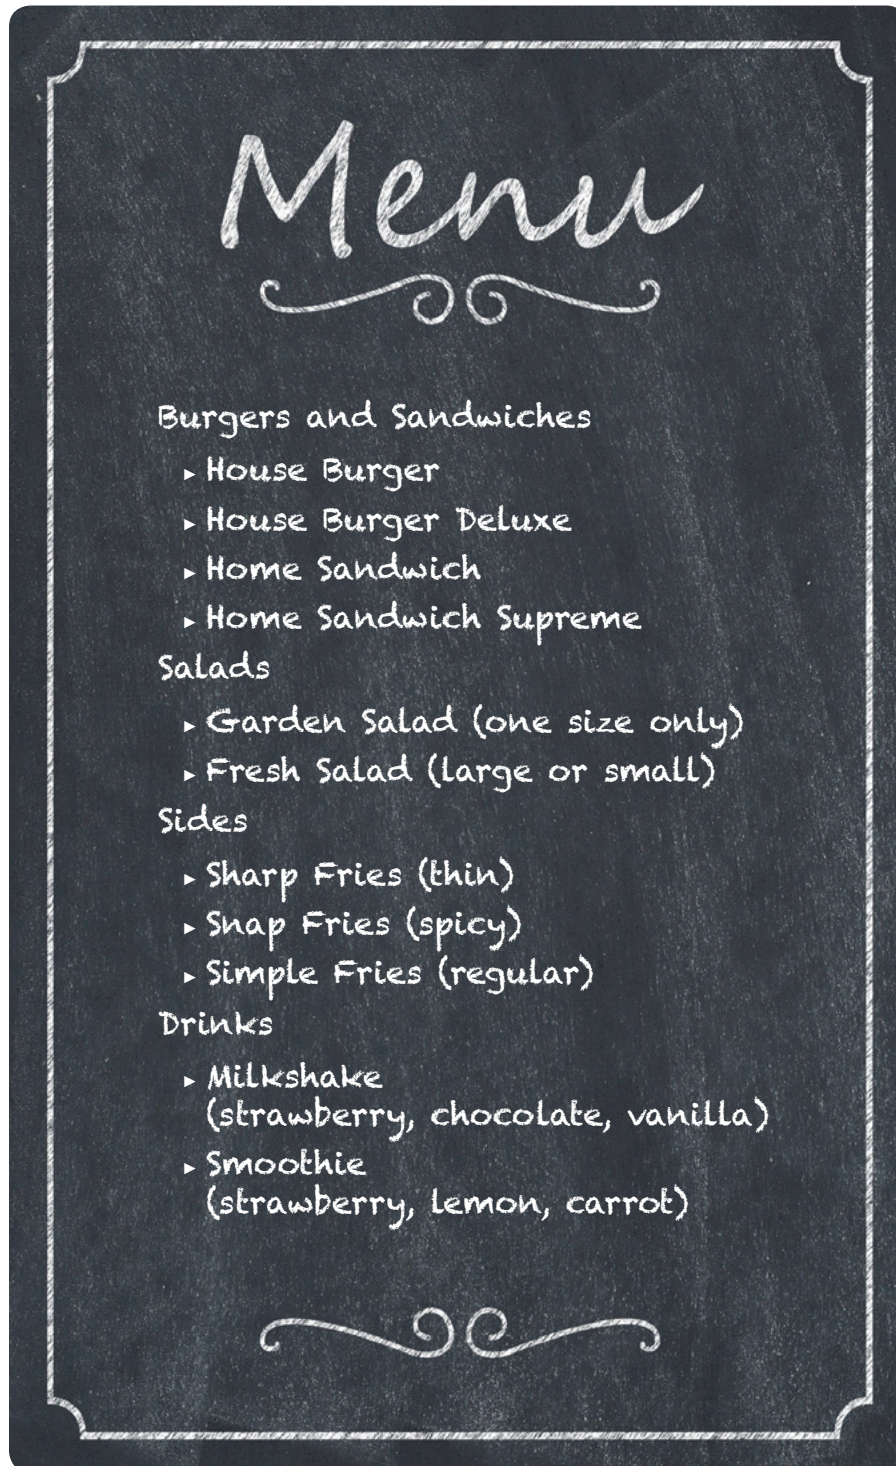 Menu
Burgers and Sandwiches
▸ House Burger
▸ House Burger Deluxe
▸ Home Sandwich
▸ Home Sandwich Supreme
Salads
▸ Garden Salad (one size only)
▸ Fresh Salad (large or small)
Sides
▸ Sharp Fries (thin)
▸ Snap Fries (spicy)
▸ Simple Fries (regular)
Drinks
▸ Milkshake
(strawberry, chocolate, vanilla)
▸ Smoothie
(strawberry, lemon, carrot)